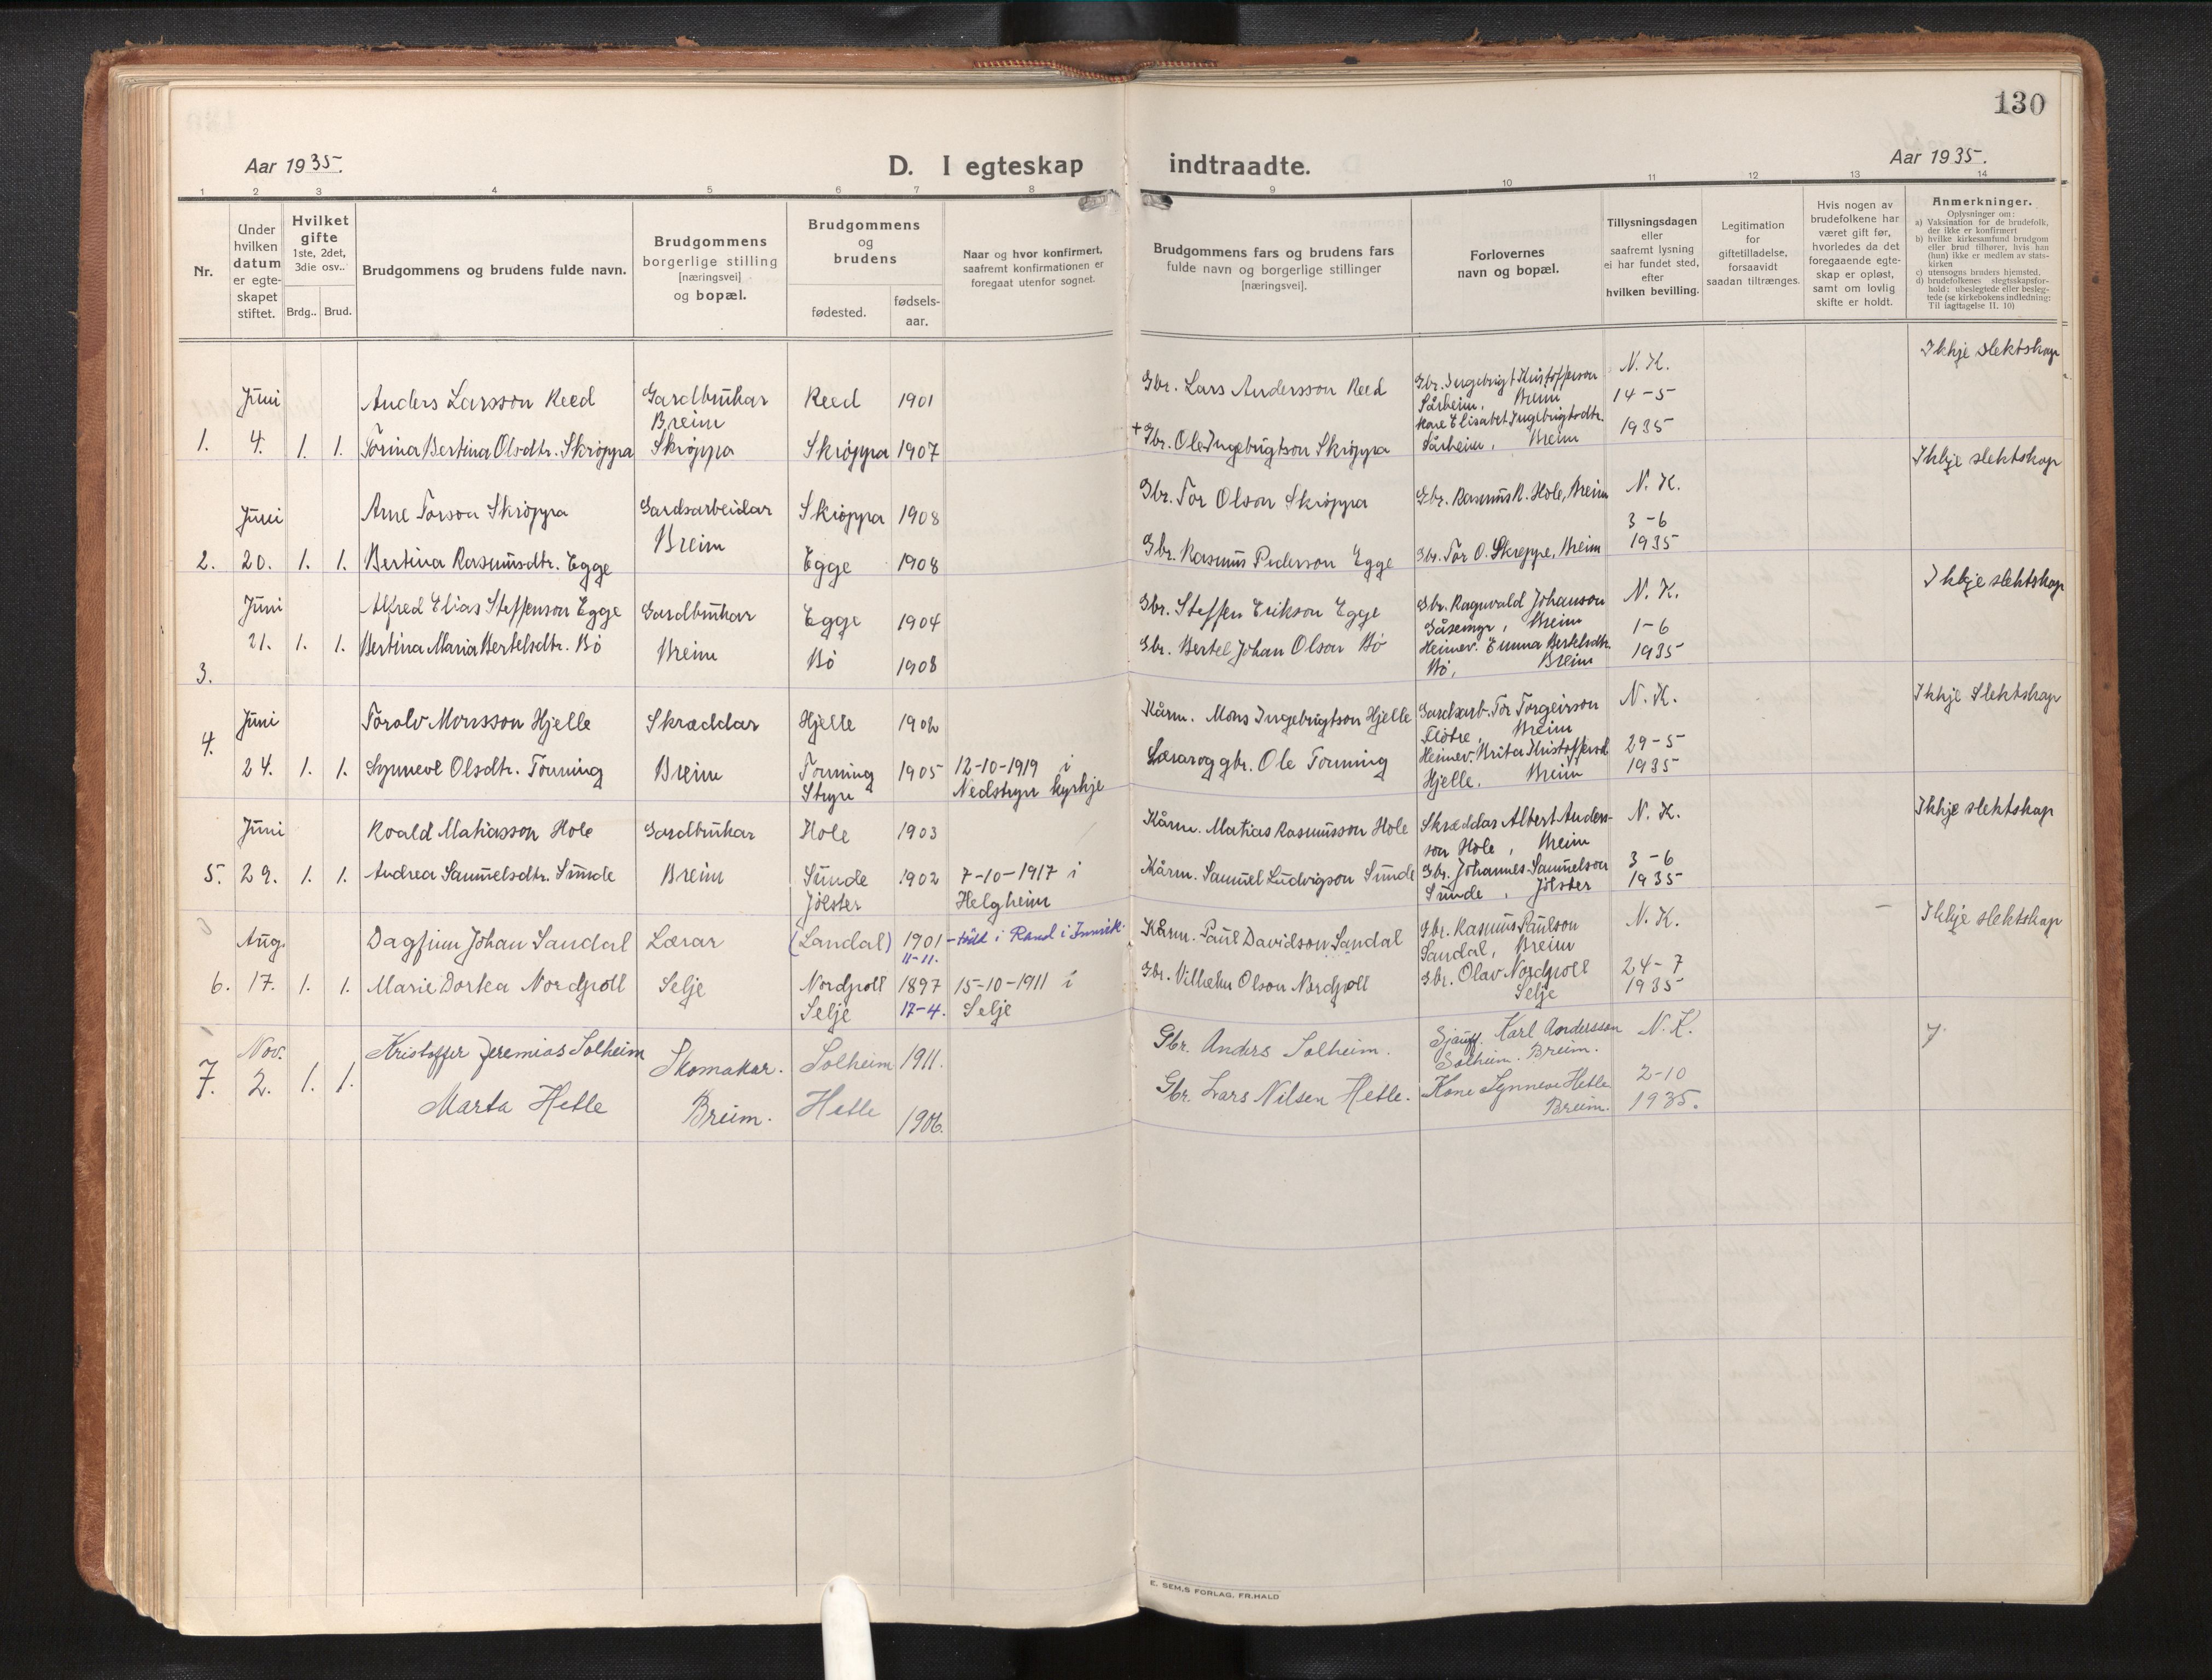 130
Aar 1935.
D. I egteskap indtraadte.
Aar 1935.
1 2 3 4 5 6 7 8 9 10 11 12 13 14
Nr.
Under
hvilken
datum
er egte-
skapet
stiftet.
Hvilket
gifte
1ste, 2det,
3die osv..
Brdg.. Brud.
Brudgommens og brudens fulde navn.
Brudgommens
borgerlige stilling
[næringsvei]
og bopæl.
Brudgommens
og
brudens
fødested.
fødsels-
aar.
Naar og hvor konfirmert,
saafremt konfirmationen er
foregaat utenfor sognet.
Brudgommens fars og brudens fars
fulde navn og borgerlige stillinger
[næringsvei].
Forlovernes
navn og bopæl.
Tillysningsdagen
eller
saafremt lysning
ei har fundet sted,
efter
hvilken bevilling.
Legitimation
for
giftetilladelse,
forsaavidt
saadan tiltrænges.
Hvis nogen av
brudefolkene har
været gift før,
hvorledes da det
foregaaende egte-
skap er opløst,
samt om lovlig
skifte er holdt.
Anmerkninger.
Oplysninger om:
a) Vaksination for de brudefolk,
der ikke er konfirmert
b) hvilke kirkesamfund brudgom
eller brud tilhører, hvis han
(hun) ikke er medlem av stats-
kirken
c) utensogns bruders hjemsted.
d) brudefolkenes slegtsskapsfor-
hold: ubeslegtede eller besleg-
tede (se kirkebokens indledning:
Til iagttagelse II. 10)
Juni Anders Larsson Reed Gardbrukar Reed 1901 Gbr. Lars Andersson Reed Gbr. Ingebrigt Kristofferson N. K. Ikkje slektskap
Breim Sårheim, Breim 14-5
1. 4. 1. 1. Torina Bertina Olsdtr. Skrøppa Skrøppa Skrøppa 1907 + Gbr. Ole Ingebrigtson Skrøppa Kone Elisabet Ingebrigtsdtr. 1935
Sårheim, Breim
Juni Arne Torson Skrøppa Gardsarbeidar Skrøppa 1908 Gbr. Tor Olson Skrøppa Gbr. Rasmus R. Hole, Breim N. K. Ikkje slektskap
Breim 3-6
2. 20. 1. 1. Bertina Rasmusdtr. Egge Egge 1908 Gbr. Rasmus Pederson Egge Gbr. Tor O. Skreppe, Breim 1935
Juni Alfred Elias Steffenson Egge Gardbrukar Egge 1904 Gbr. Steffen Erikson Egge Gbr. Ragnvald Johanson N. K. Ikkje slektskap
Gåsemyr, Breim 1-6
3. 21. 1. 1. Bertina Maria Bertelsdtr. Bø Breim Bø 1908 Gbr. Bertel Johan Olson Bø Heimev. Emma Bertelsdtr. 1935
Bø, Breim
Juni Torolv Monsson Hjelle Skræddar Hjelle 1902 Kårm. Mons Ingebrigtson Hjelle Gardsarb. Tor Torgeirson N. K. Ikkje slektskap
Fløtre, Breim
4. 24. 1. 1. Synneve Olsdtr. Tonning Breim Tonning 1905 12-10-1919 i Lærar og gbr. Ole Tonning Heimev. Brita Kristoffersd. 29-5
Stryn Nedstryn kyrkje Hjelle. Breim 1935
Juni Roald Matiasson Hole Gardbrukar Hole 1903 Kårm. Matias Rasmusson Hole Skræddar Albert Anders- N. K. Ikkje slektskap
son Hole, Breim
5. 29. 1. 1. Andrea Samuelsdtr. Sunde Breim Sunde 1902 7-10-1917 i Kårm. Samuel Ludvigson Sunde Gbr. Johannes Samuelson 3-6
Jølster Helgheim Sunde, Jølster 1935
Aug. Dagfinn Johan Sandal Lærar (Sandal) 1901 - født i Rand i Innvik. Kårm. Paul Davidson Sandal Gbr. Rasmus Paulson N. K. Ikkje slektskap
11-11. Sandal, Breim
6. 17. 1. 1. Marie Dortea Nordpoll Selje Nordpoll 1897 15-10-1911 i Gbr. Vilhelm Olson Nordpoll Gbr. Olav Nordpoll 24-7
Selje 17-4. Selje Selje 1935
Nov. Kristoffer Jeremias Solheim Skomakar. Solheim 1911. Gbr. Anders Solheim. Karl Andersson N. K.
Solheim. Breim.
7. 2. 1. 1. Marta Hetle Breim. Hetle 1906. Gbr. Lars Nilsen Hetle. Kone Synneve Hetle 2-10
Breim. 1935.
E. SEM.S FORLAG, FR.HALD